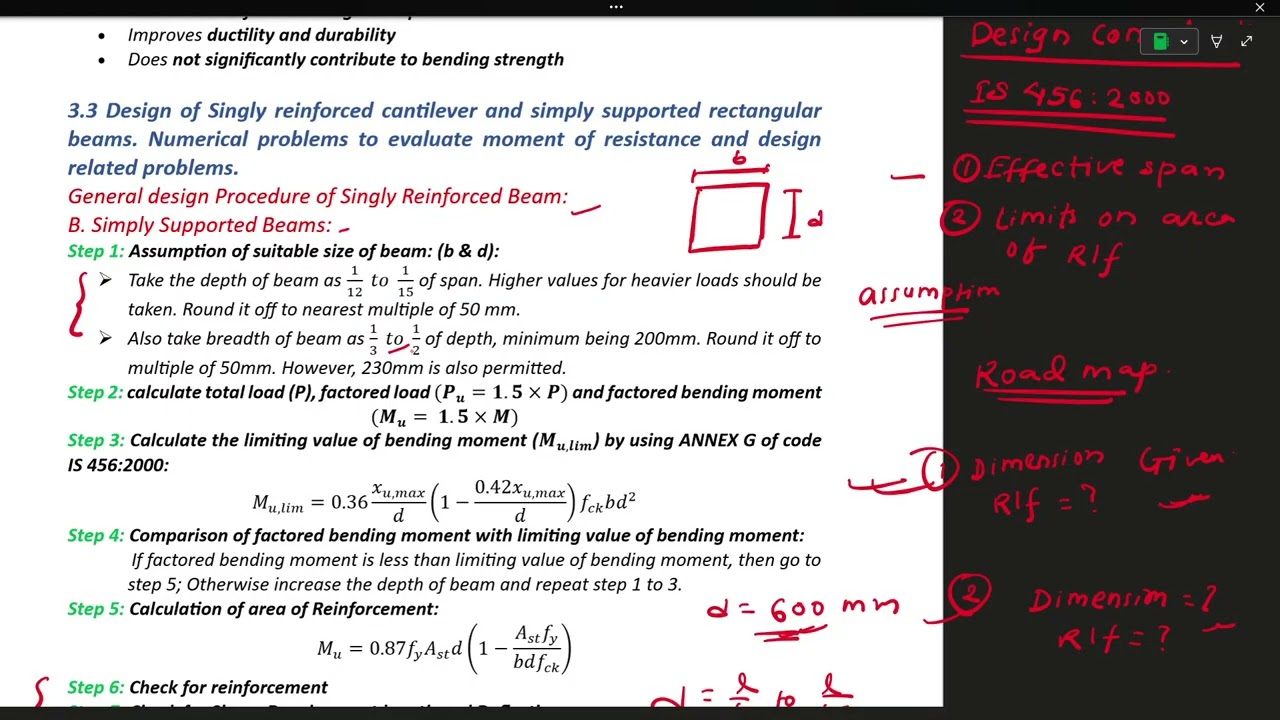 • Improves ductility and durability
• Does not significantly contribute to bending strength
3.3 Design of Singly reinforced cantilever and simply supported rectangular
beams. Numerical problems to evaluate moment of resistance and design
related problems.
General design Procedure of Singly Reinforced Beam:
B. Simply Supported Beams:
b
d
Step 1: Assumption of suitable size of beam: (b & d):
➢ Take the depth of beam as 1/12 to 1/15 of span. Higher values for heavier loads should be
taken. Round it off to nearest multiple of 50 mm.
➢ Also take breadth of beam as 1/3 to 1/2 of depth, minimum being 200mm. Round it off to
multiple of 50mm. However, 230mm is also permitted.
Step 2: calculate total load (P), factored load (P_u = 1.5 × P) and factored bending moment
(M_u = 1.5 × M)
Step 3: Calculate the limiting value of bending moment (M_u,lim) by using ANNEX G of code
IS 456:2000:
M_u,lim = 0.36 x_u,max/d (1 − 0.42x_u,max/d) f_ck bd²
Step 4: Comparison of factored bending moment with limiting value of bending moment:
If factored bending moment is less than limiting value of bending moment, then go to
step 5; Otherwise increase the depth of beam and repeat step 1 to 3.
Step 5: Calculation of area of Reinforcement:
d = 600 mm
M_u = 0.87f_y A_st d (1 − A_st f_y/bdf_ck)
Step 6: Check for reinforcement
Design
IS 456:2000
① Effective span
② Limits on area
of R/f
assumption
Road map.
① Dimension Given.
R/f = ?
② Dimension = ?
R/f = ?